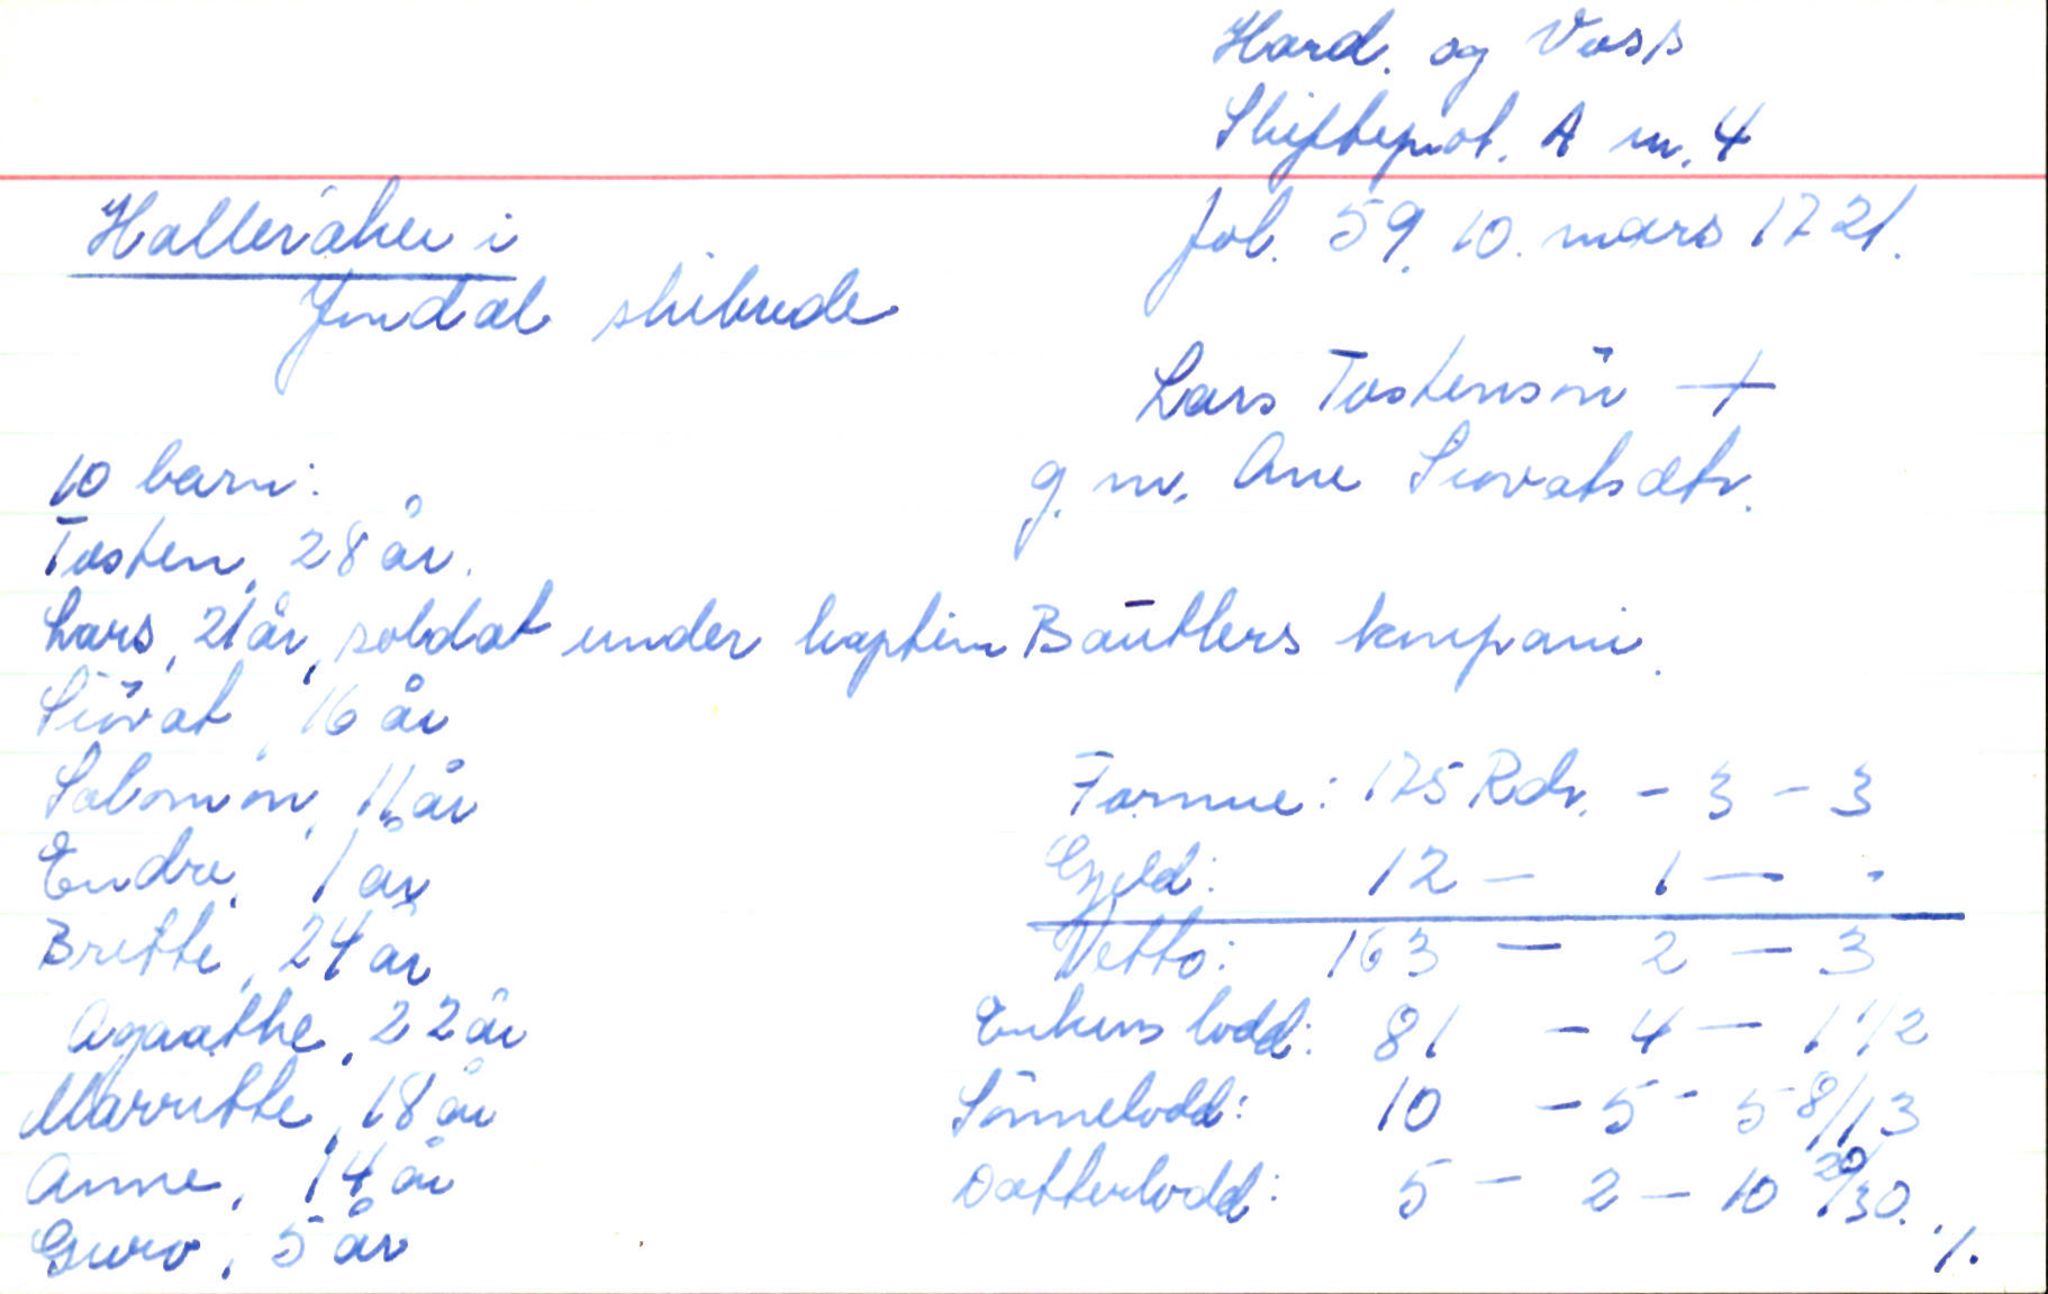 Hard. og Voss
Skifteprot. A nr. 4
Halleråker i
fol. 59, 10. mars 1721.
Jondal skibrede
Lars Tostensön +
g. m. Ane Siovatsdtr.
10 barn:
Tosten, 28 år.
Lars, 21 år, soldat under kaptein Bautlers kompani.
Siovat, 16 år
Salomon, 11 år
Endre, 1 år
Britte, 24 år
Agaathe, 22 år
Marritte, 18 år
Anne, 14 år
Guro, 5 år
Formue: 175 Rdr. - 3 - 3
Gjeld: 12 - 1 - -
Netto: 163 - 2 - 3
Enkens lodd: 81 - 4 - 1 1/2
Sönnelodd: 10 - 5 - 5 8/13
Datterlodd: 5 - 2 - 10 20/30. ./.